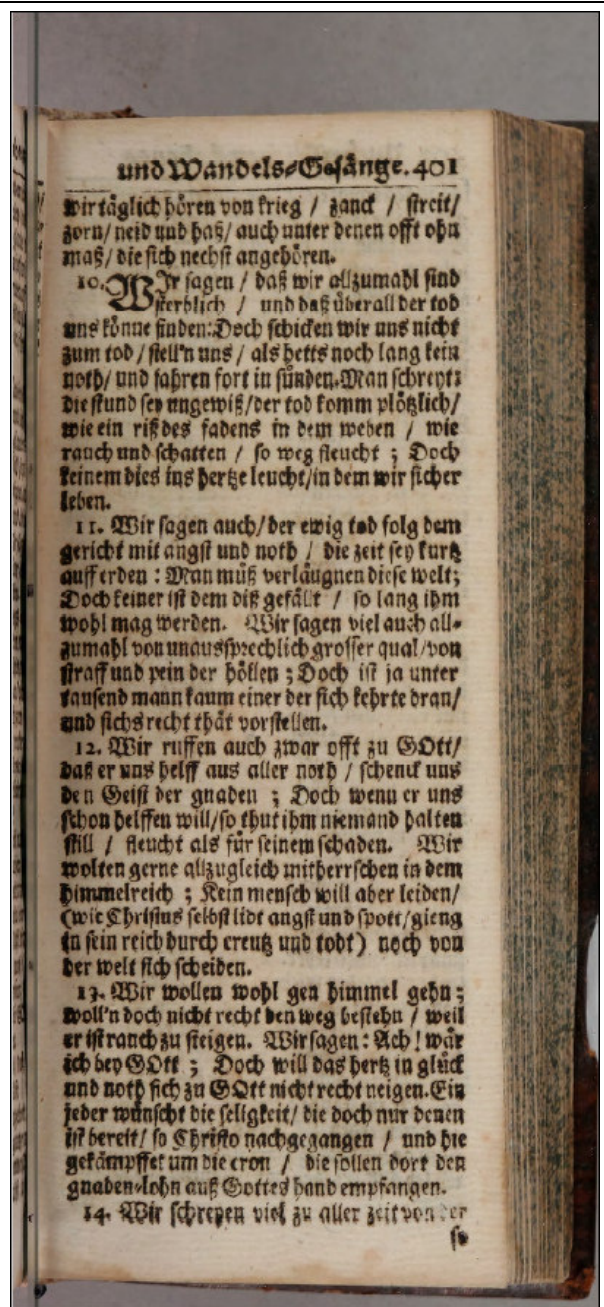 und Wandels-Gesänge. 401
wir täglich hören von krieg / zanck / streit/
zorn/ neid und haß/ auch unter denen offt ohn
maß/ die sich nechst angehören.
10. WIr sagen / daß wir allzumahl sind
sterblich / und daß überall der tod
uns könne finden: Doch schicken wir uns nicht
zum tod / stell'n uns / als hetts noch lang kein
noth/ und fahren fort in sünden. Man schreyt:
die stund sey ungewiß/der tod komm plötzlich/
wie ein riß des fadens in dem weben / wie
rauch und schatten / so weg fleucht ; Doch
keinem dies ins hertze leucht/in dem wir sicher
leben.
11. Wir sagen auch/der ewig tod folg dem
gericht mit angst und noth / die zeit sey kurtz
auff erden : Man müß verläugnen diese welt;
Doch keiner ist dem diß gefällt / so lang ihm
wohl mag werden. Wir sagen viel auch all-
zumahl von unaussprechlich grosser qual/von
straff und pein der höllen ; Doch ist ja unter
tausend mann kaum einer der sich kehrte dran/
und sichs recht thät vorstellen.
12. Wir ruffen auch zwar offt zu GOtt/
daß er uns helff aus aller noth / schenck uns
den Geist der gnaden ; Doch wenn er uns
schon helffen will/so thut ihm niemand halten
still / fleucht als für seinem schaden. Wir
wolten gerne allzugleich mitherrschen in dem
himmelreich ; Kein mensch will aber leiden/
(wie Christus selbst lidt angst und spott/gieng
in sein reich durch creutz und todt) noch von
der welt sich scheiden.
13. Wir wollen wohl gen himmel gehn;
woll'n doch nicht recht den weg bestehn / weil
er ist rauch zu steigen. Wir sagen: Ach! wär
ich bey GOtt ; Doch will das hertz in glück
und noth sich zu GOtt nicht recht neigen. Ein
jeder wünscht die seligkeit/ die doch nur denen
ist bereit/ so Christo nachgegangen / und hie
gekämpffet um die cron / die sollen dort den
gnaden-lohn auß Gottes hand empfangen.
14. Wir schreyen viel zu aller zeit von der
so